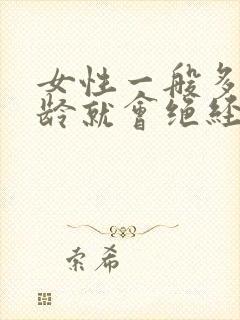 女性一般多
龄就會绝经
索希